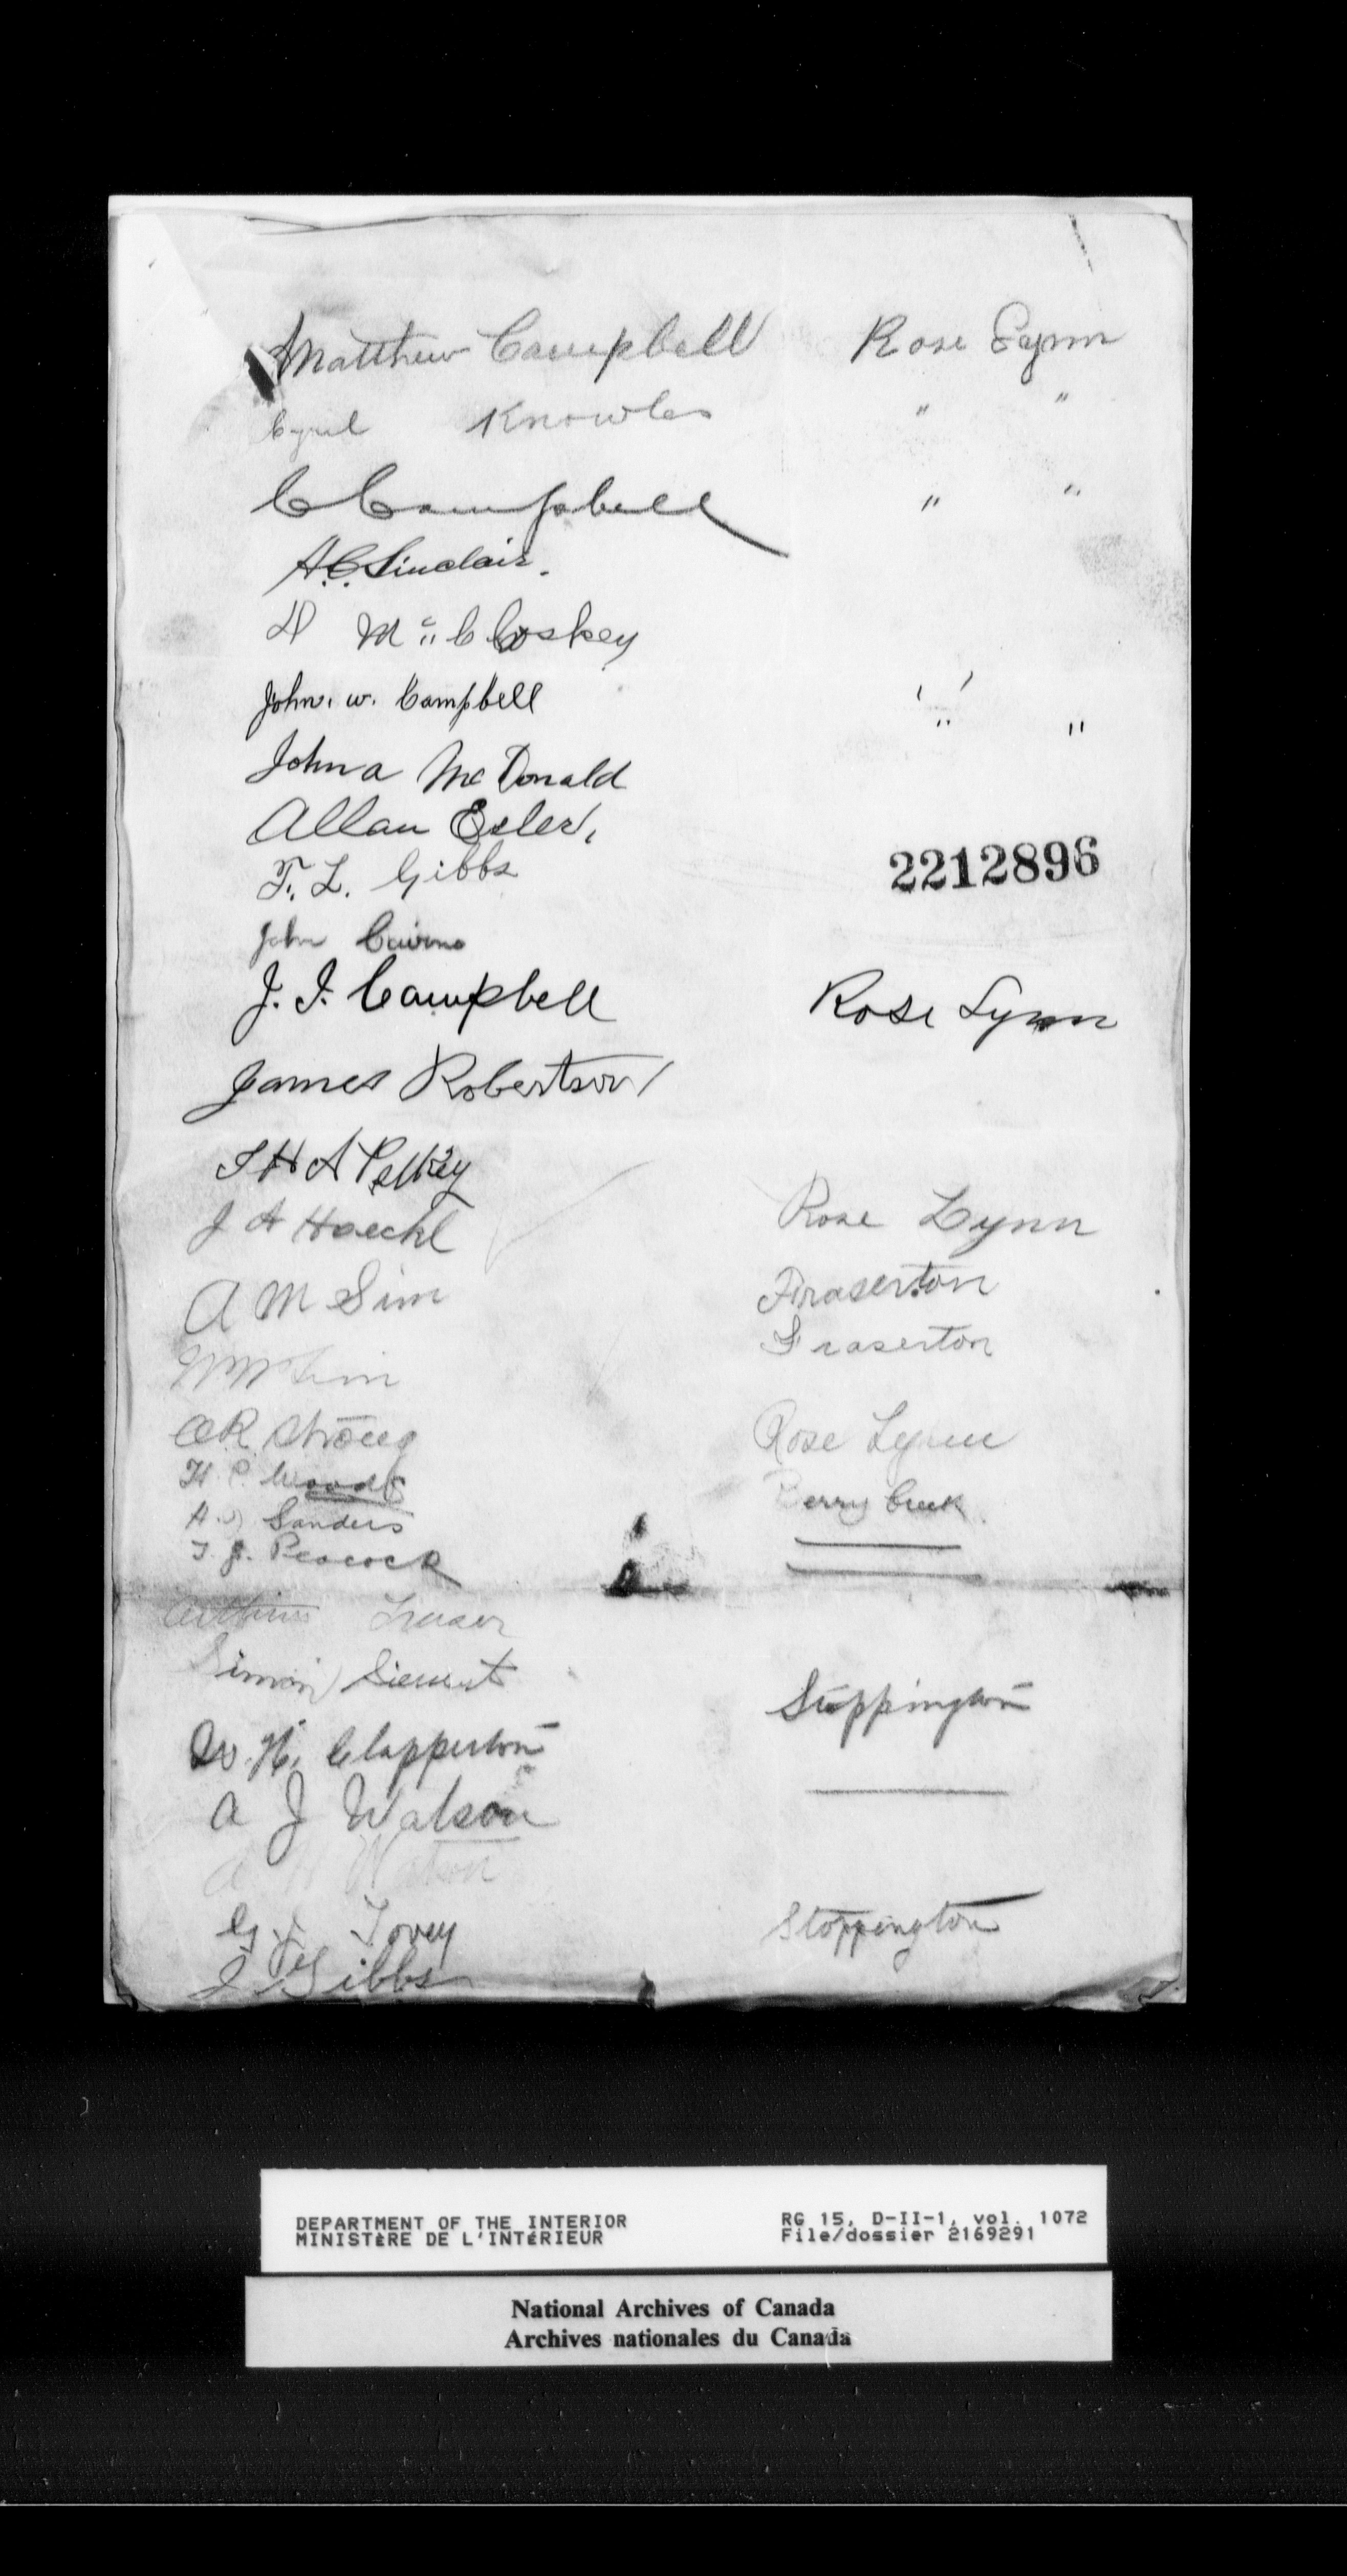 Matthew Campbell Rose Lynn
Cyril Knowles " "
C Campbell " "
A.C. Sinclair.
D McCloskey
John. W. Campbell " "
John A McDonald
Allan Esler,
T. L. Gibbs 2212896
John Cairns
J. J. Campbell Rose Lynn
James Robertson
A Pelkey
J A Haeckl Rose Lynn
A M Sim Fraserton
Sim Fraserton
R. Strong Rose Lynn
H. C. Woods Berry Creek
A. Sanders
T. J. Peacock
Arthur Fraser
Simon
Stoppington
W. H. Clapperton
A J Watson
A Watson
G. Tovey Stoppington
J Gibbs
DEPARTMENT OF THE INTERIOR RG 15, D-II-1, vol. 1072
MINISTÈRE DE L'INTÉRIEUR File/dossier 2169291
National Archives of Canada
Archives nationales du Canada